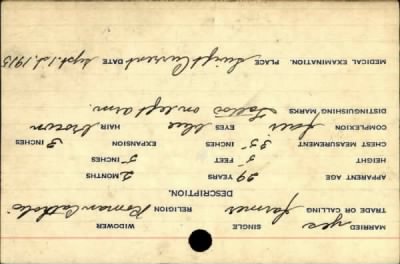 MARRIED yes SINGLE WIDOWER
TRADE OR CALLING farmer RELIGION Roman Catholic
DESCRIPTION.
APPARENT AGE 29 YEARS 2 MONTHS
HEIGHT 5 FEET 5 INCHES
CHEST MEASUREMENT 35 INCHES EXPANSION 3 INCHES
COMPLEXION fair EYES blue HAIR brown
DISTINGUISHING MARKS Tattoo on left arm.
MEDICAL EXAMINATION. PLACE Swift Current DATE Sept. 1st, 1915